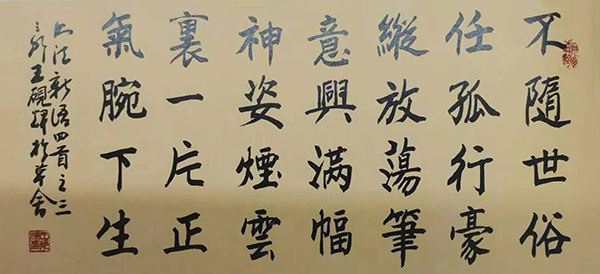 不隨世俗
任孤行豪
縱放蕩筆
意興滿幅
神姿煙雲
裏一片正
氣腕下生
法新語四首之三
王硯輝於草舍